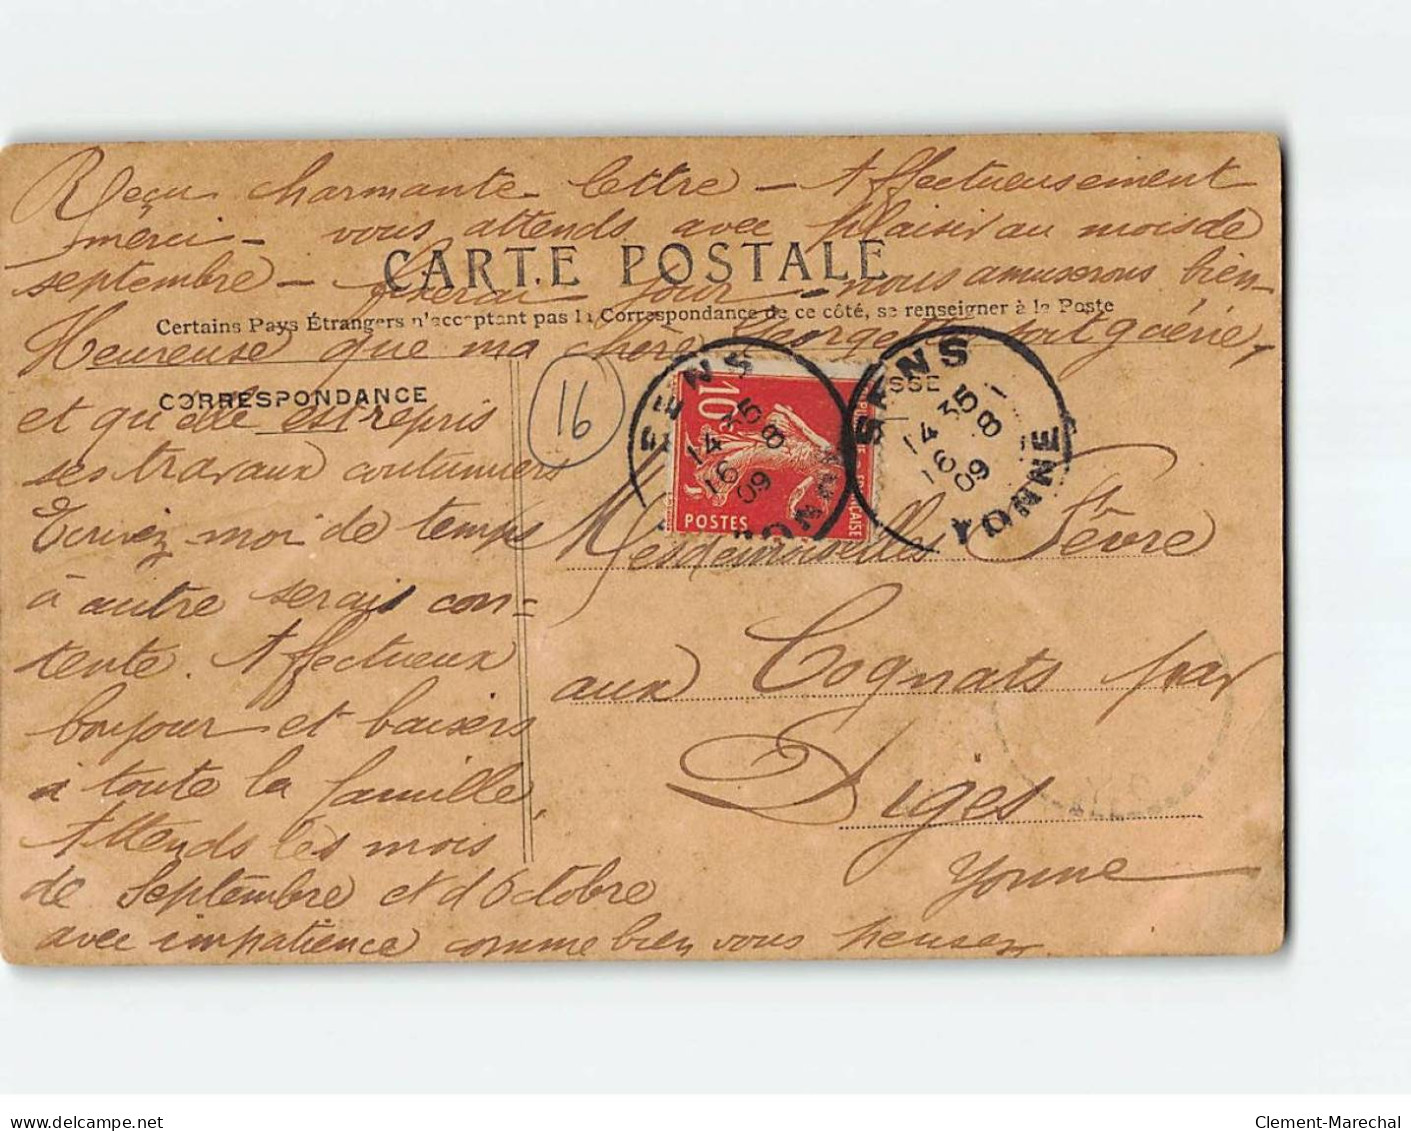 Reçu charmante lettre – Affectueusement
merci – vous attends avec plaisir au mois de
septembre – fixerai jour – nous amuserons bien
CARTE POSTALE
Certains Pays Étrangers n'acceptent pas la Correspondance de ce côté, se renseigner à la Poste
Heureuse que ma chère Georgette soit guérie,
CORRESPONDANCE
et qu'elle est repris
ses travaux coutumiers
Ecrivez moi de temps
à autre serais con=
tente. Affectueux
bonjour et baisers
à toute la famille,
Attends les mois
de Septembre et d'Octobre
avec impatience comme bien vous pensez
16
10
POSTES
FRANÇAISE
SENS
14 35
16 8
09
YONNE
SENS
14 35
16 8
09
YONNE
Mesdemoiselles Fèvre
aux Cognats par
Diges
Yonne
www.delcampe.net
Clement-Marechal